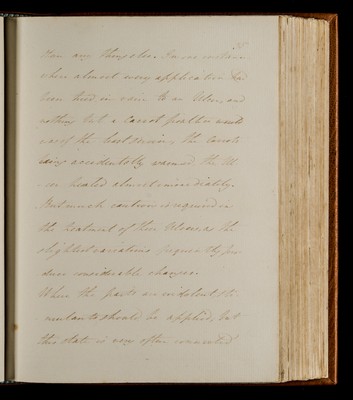 than any thing else. In an instance
where almost every application had
been tried in vain to an Ulcer, and
nothing but a Carrot poultice would
the best service, the Carrots
being accidentally warmed the Ul-
-cer healed almost immediately.
But much caution is required in
the treatment of these Ulcers, as the
slightest variations frequently pro-
duce considerable changes.
When the parts are indolent, sti-
-mulants should be applied, but
this state is very often connected